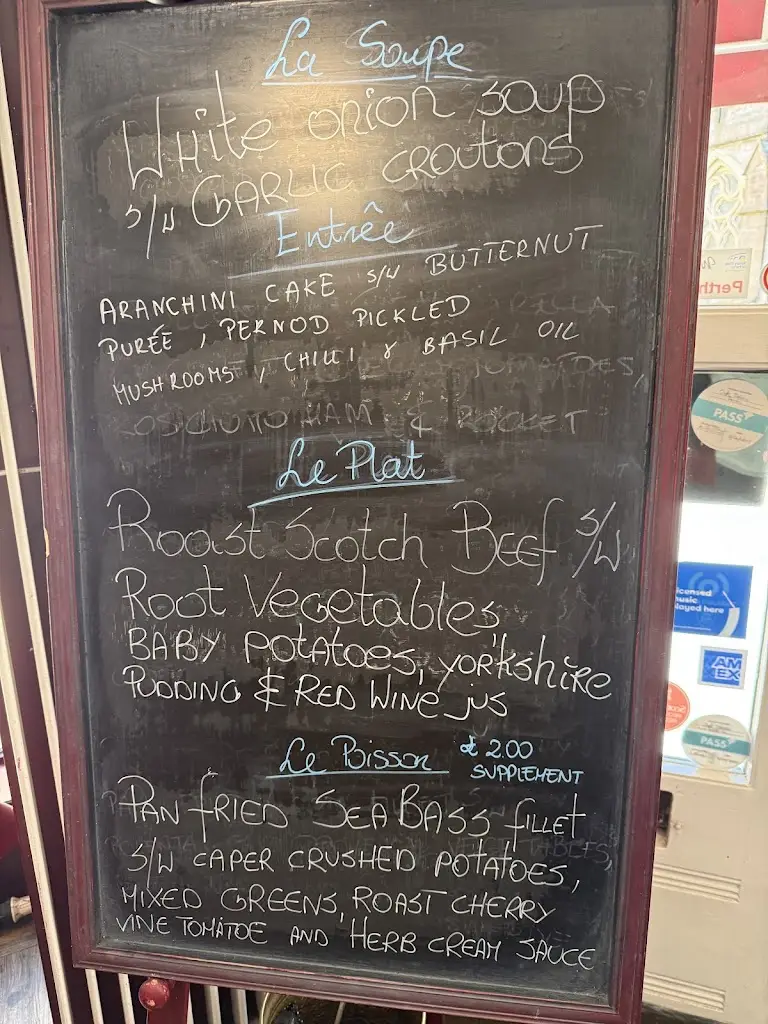 La Soupe
White onion soup
s/w Garlic croutons
Entrée
ARANCHINI CAKE s/w BUTTERNUT
PURÉE, PERNOD PICKLED
MUSHROOMS, CHILLI & BASIL OIL
HAM & ROCKET
Le Plat
Roast Scotch Beef s/w
Root Vegetables,
BABY POTATOES, YORKSHIRE
PUDDING & RED WINE jus
Le Poisson £2.00
SUPPLEMENT
PAN fRIED SEA BASS fillet
s/w CAPER CRUSHED POTATOES,
MIXED GREENS, ROAST CHERRY
VINE TOMATOE AND HERB CREAM SAUCE
Perth
PASS
licensed
music
played here
AM
EX
PASS